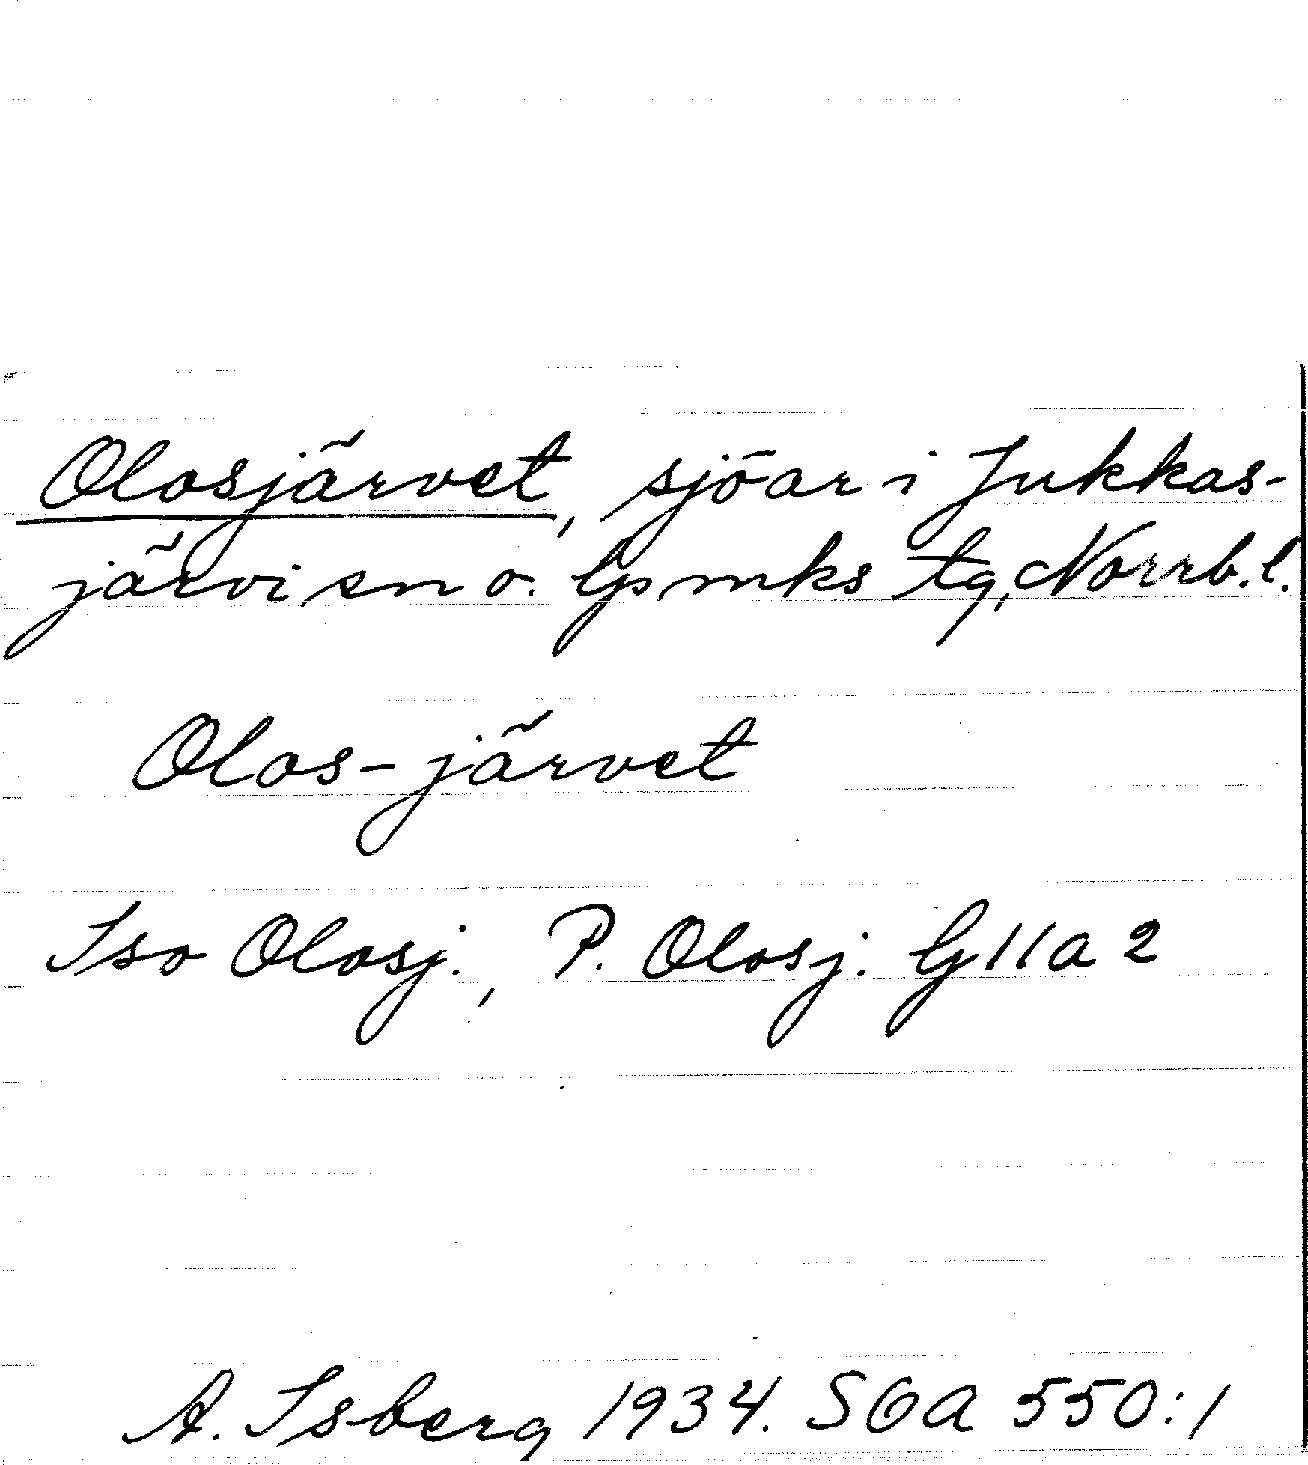 Olosjärvet, sjöar i Jukkas-
järvi sn o. lpsmks tg, Norrb.l.
Olos-järvet
Iso Olosj., P. Olosj. G 11 a 2
A. Isberg 1934. SOA 550:1